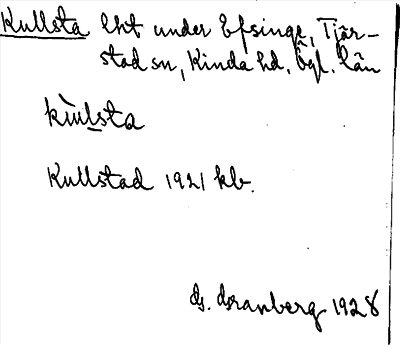 Kullsta lht under Efsinge, Tjär-
stad sn, Kinda hd, Ögl. län
kùlsta
Kullstad 1921 kb.
G. Granberg 1928